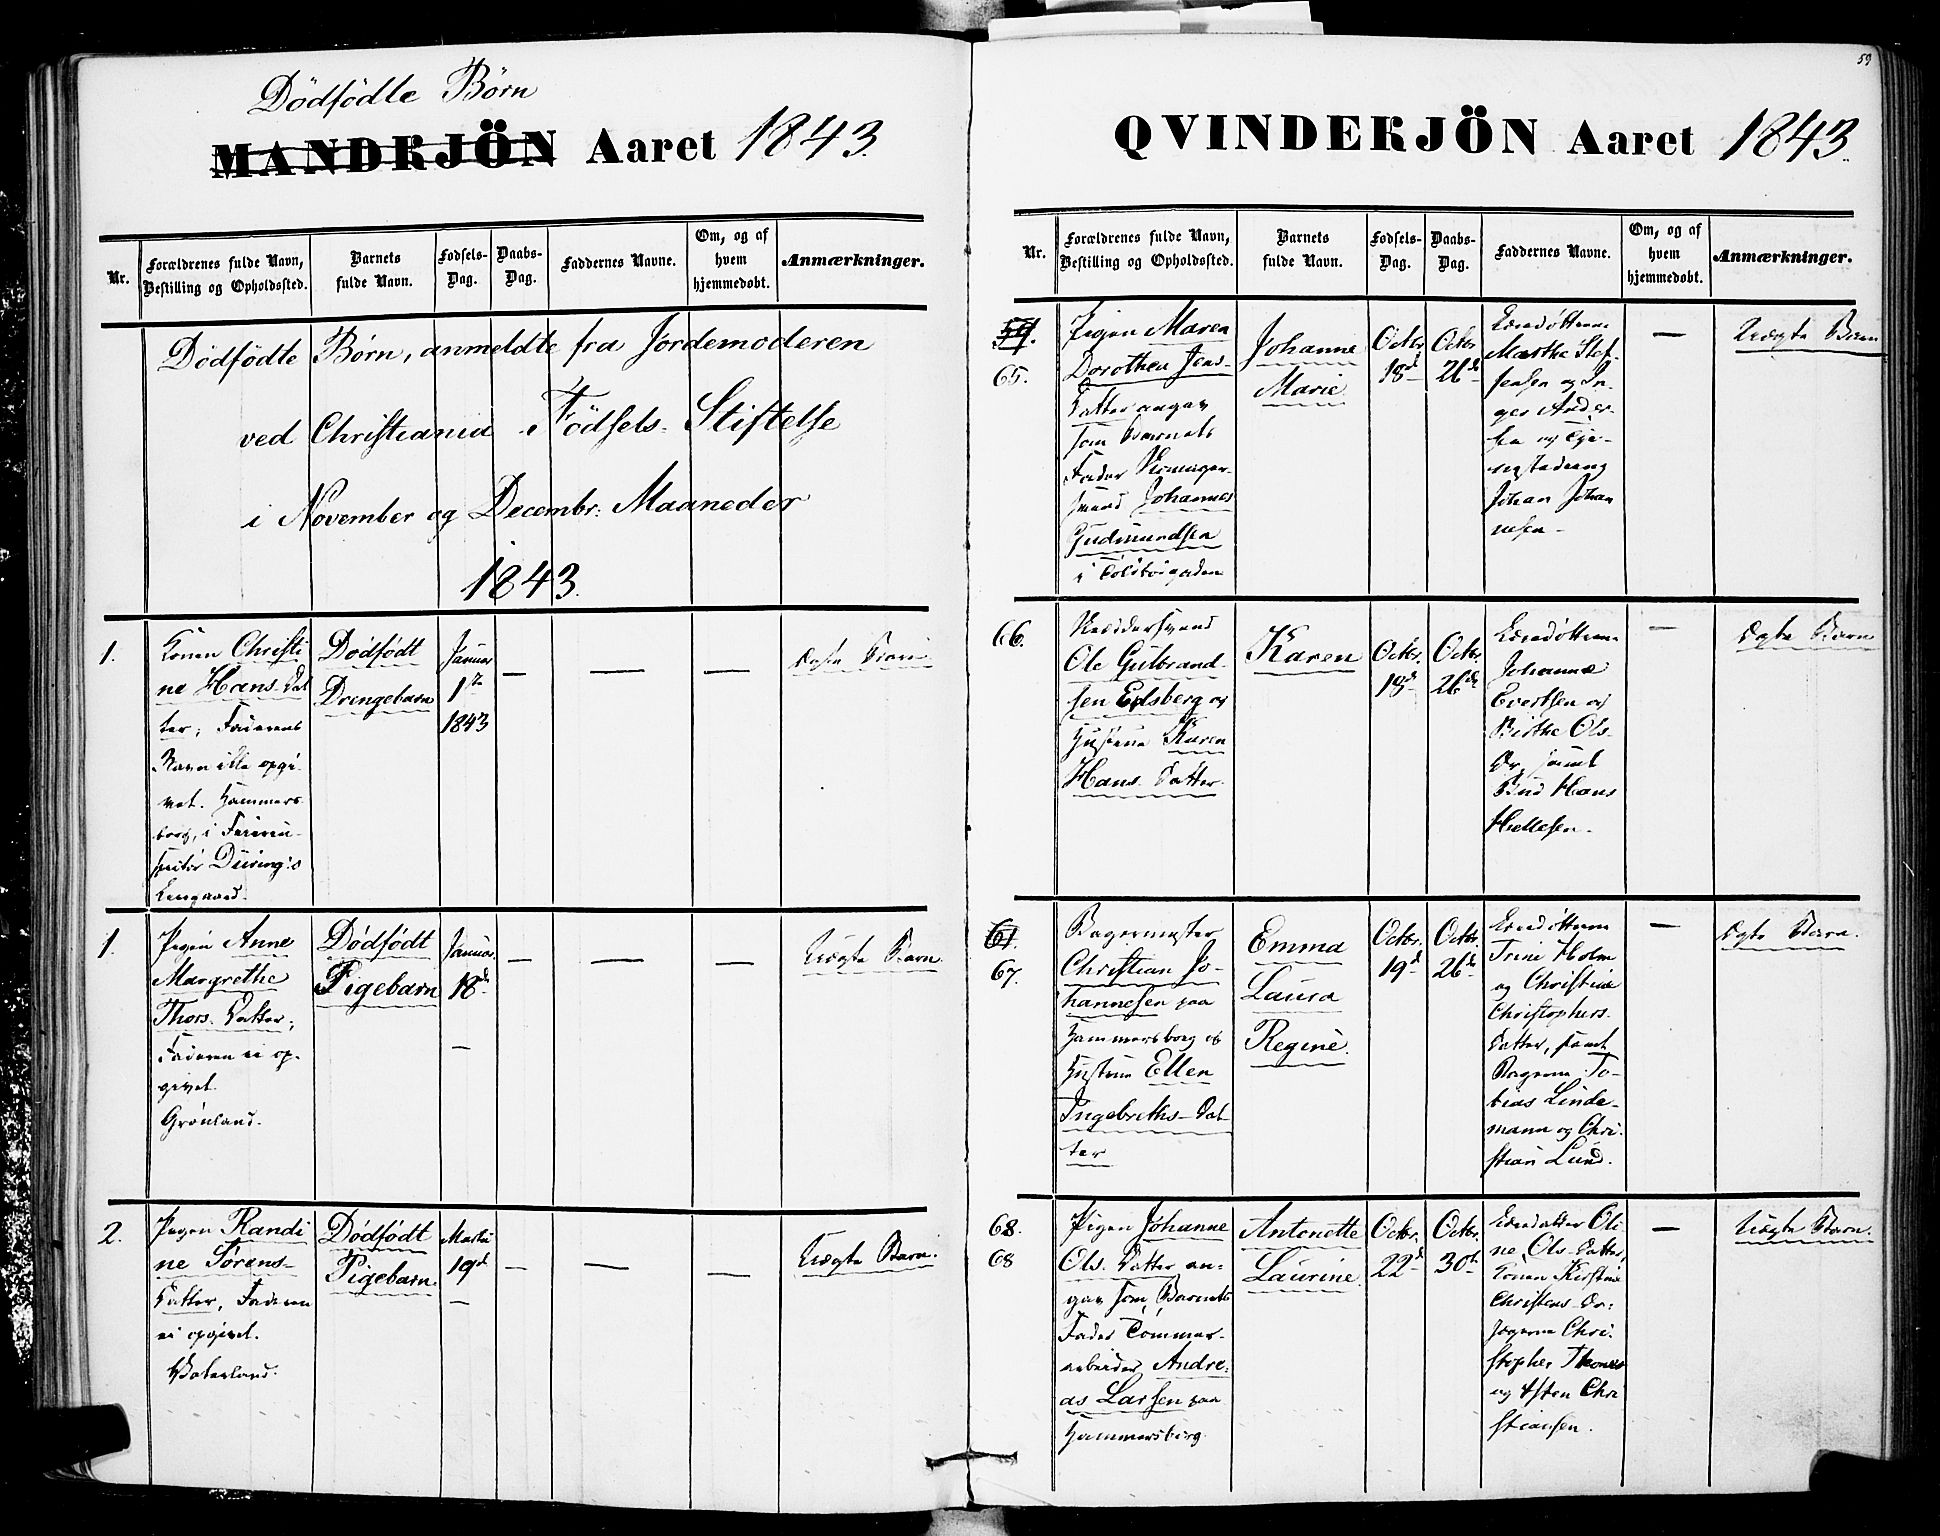 Dödfödte Börn
MANDKJÖN Aaret 1843.
Nr.
Forældrenes fulde Navn,
Bestilling og Opholdssted.
Barnets
fulde Navn.
Fødsels-
Dag.
Daabs-
Dag.
Faddernes Navne.
Om, og af
hvem
hjemmedøbt.
Anmærkninger.
Dödfödte Börn, anmeldte fra Jordemoderen
ved Christiania Födsels-Stiftelse
i November og Decembr: Maaneder
1843.
1.
Konen Christi
ne Hans-Dat
ter; Faderens
Navn ikke opgi-
vet. Hammers
borg, i
Düring's
Dödfödt
Drengebarn
Januar
1ste
1843
—
—
—
Ægte Barn.
1.
Pigen Anne
Margrethe
Thors-Datter;
Faderen ei op-
givet.
Grönland.
Dödfödt
Pigebarn
Januar
18de
—
—
—
—
Uægte Barn
2.
Pigen Randi
ne Sørens-
Datter, Faderen
ei opgivet.
Vaterland.
Dödfödt
Pigebarn.
Martii
19d
—
—
—
—
Uægte Barn.
59
QVINDEKJÖN Aaret 1843.
Nr.
Forældrenes fulde Navn,
Bestilling og Opholdssted.
Barnets
fulde Navn.
Fødsels-
Dag.
Daabs-
Dag.
Faddernes Navne.
Om, og af
hvem
hjemmedøbt.
Anmærkninger.
65.
Pigen Maren
Dorothea Jens-
Datter angav
som Barnets
Fader
Johannes
Gudmundsen
i Toldbodgaden
Johanne
Marie
Octbr.
18d
Octbr.
26d
Martha Stef-
fensen og In-
ger Ander-
sen og Tje-
nestedreng
Johan Johan
nesen-
—
Uægte Barn
66.
Ole Gulbrand-
sen Edsberg og
Hustrue Karen
Hans-Datter.
Karen
Octbr.
19d
Octbr.
26de
Johanne
Evertsen og
Birthe Ols-
Dr, samt
Bud Hans
Hellesen.
—
Ægte Barn
61.
67.
Bagermester
Christian Jo-
hannesen paa
Hammersborg og
Hustrue Ellen
Ingebreths-Dat
ter
Emma
Laura
Regine.
Octbr.
19d
Octbr.
26d
Trine Holm
og Christine
Christophers-
Datter, samt
Bagerne To-
bias Linde-
mann og Chri-
stian Lund.
—
Ægte Barn.
68.
68
Pigen Johanne
Ols-Datter an-
gav som Barnets
Fader Tömmer-
arbeider Andre-
as Larsen paa
Hammersborg.
Antonette
Laurine.
Octbr.
22d
Octbr.
30te
Oli
ne Ols-Datter,
Konen Kirstine
Christens-Dr:
Chri-
stopher Thones
og Chri
stiansen.
—
Uægte Barn.